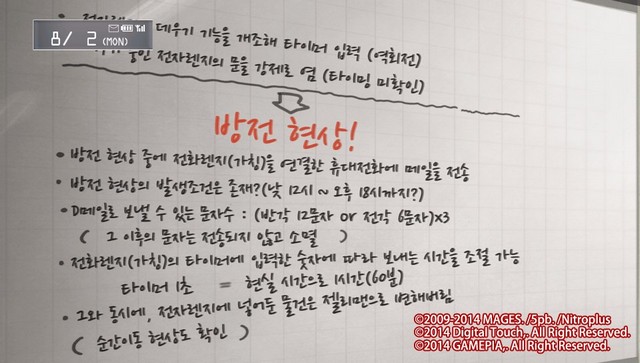 8/ 2 (MON)
데우기 기능을 개조해 타이머 입력 (역회전)
중인 전자렌지의 문을 강제로 염 (타이밍 미확인)
방전 현상!
• 방전 현상 중에 전화렌지(가칭)을 연결한 휴대전화에 메일을 전송
• 방전 현상의 발생조건은 존재?(낮 12시 ~ 오후 18시까지?)
• D메일로 보낼 수 있는 문자수 : (반각 12문자 or 전각 6문자)x3
( 그 이후의 문자는 전송되지 않고 소멸 )
• 전화렌지(가칭)의 타이머에 입력한 숫자에 따라 보내는 시간을 조절 가능
타이머 1초 = 현실 시간으로 1시간(60분)
• 그와 동시에, 전자렌지에 넣어둔 물건은 젤리맨으로 변해버림
( 순간이동 현상도 확인 )
©2009-2014 MAGES. /5pb. /Nitroplus
©2014 Digital Touch,. All Right Reserved.
©2014 GAMEPIA,. All Right Reserved.